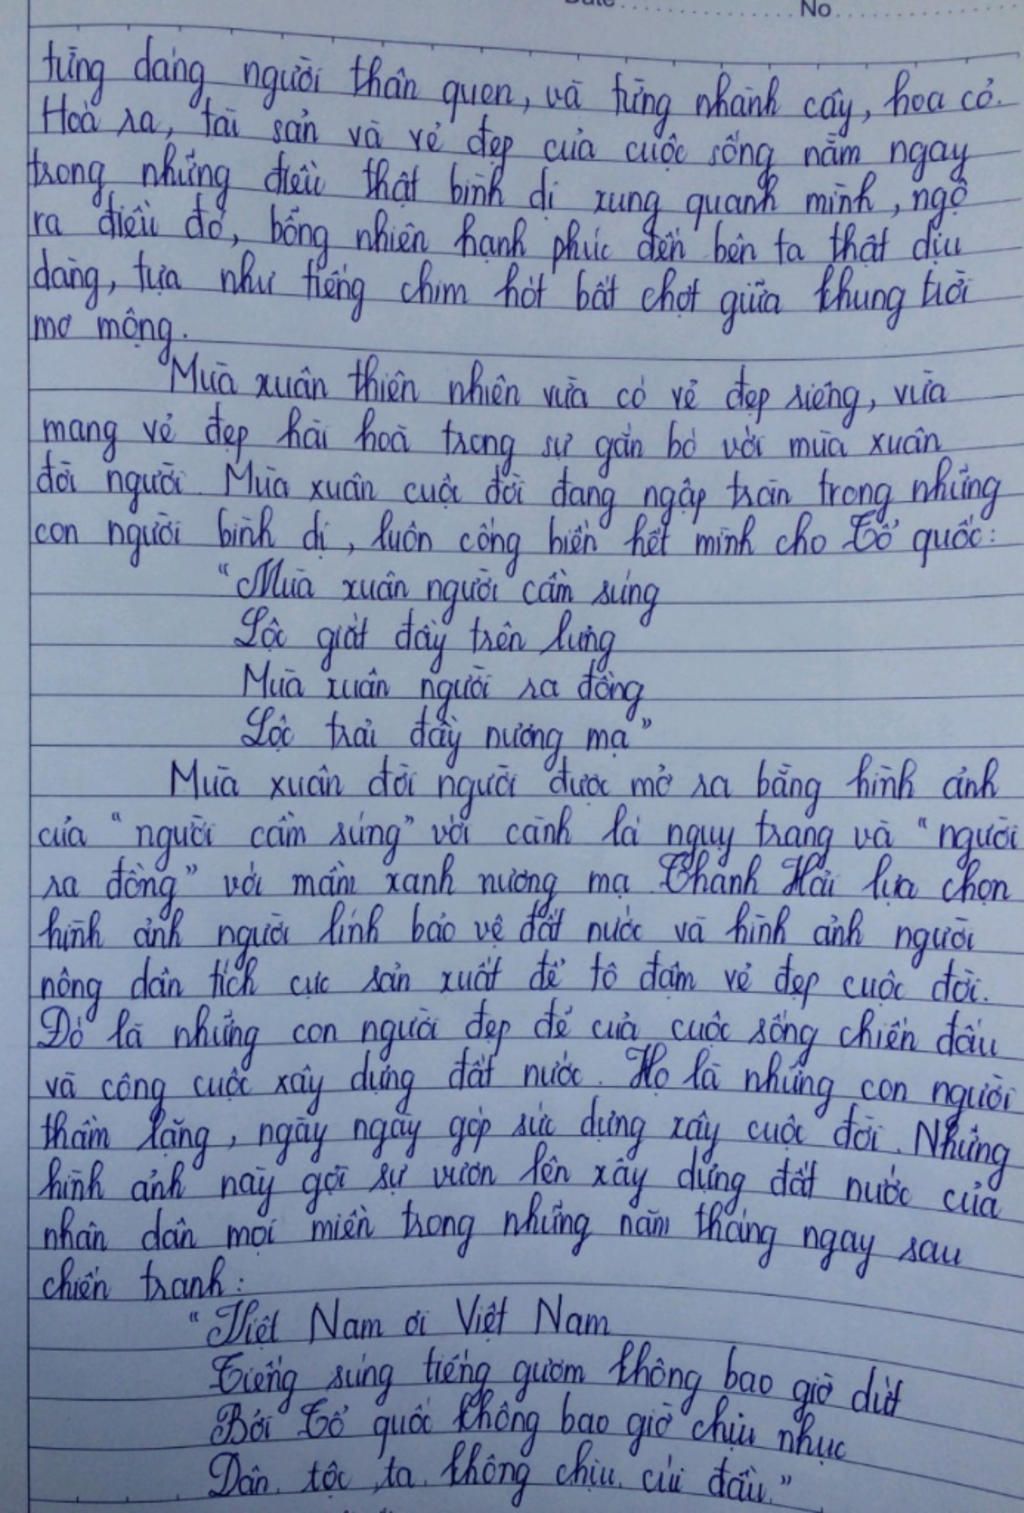 Date.............No.............
từng dáng người thân quen, và từng nhành cây, hoa cỏ.
Hoá ra, tài sản và vẻ đẹp của cuộc sống nằm ngay
trong những điều thật bình dị xung quanh mình, ngộ
ra điều đó, bỗng nhiên hạnh phúc đến bên ta thật dịu
dàng, tựa như tiếng chim hót bất chợt giữa khung trời
mơ mộng.
Mùa xuân thiên nhiên vừa có vẻ đẹp riêng, vừa
mang vẻ đẹp hài hoà trong sự gắn bó với mùa xuân
đời người. Mùa xuân cuộc đời đang ngập tràn trong những
con người bình dị, luôn cống hiến hết mình cho Tổ quốc:
"Mùa xuân người cầm súng
Lộc giắt đầy trên lưng
Mùa xuân người ra đồng
Lộc trải đầy nương mạ"
Mùa xuân đời người được mở ra bằng hình ảnh
của "người cầm súng" với cành lá nguỵ trang và "người
ra đồng" với mầm xanh nương mạ. Thanh Hải lựa chọn
hình ảnh người lính bảo vệ đất nước và hình ảnh người
nông dân tích cực sản xuất để tô đậm vẻ đẹp cuộc đời.
Đó là những con người đẹp đẽ của cuộc sống chiến đấu
và công cuộc xây dựng đất nước. Họ là những con người
thầm lặng, ngày ngày góp sức dựng xây cuộc đời. Những
hình ảnh này gợi sự vươn lên xây dựng đất nước của
nhân dân mọi miền trong những năm tháng ngay sau
chiến tranh:
"Việt Nam ơi Việt Nam
Tiếng súng tiếng gươm không bao giờ dứt
Bởi Tổ quốc không bao giờ chịu nhục
Dân tộc ta không chịu cúi đầu."